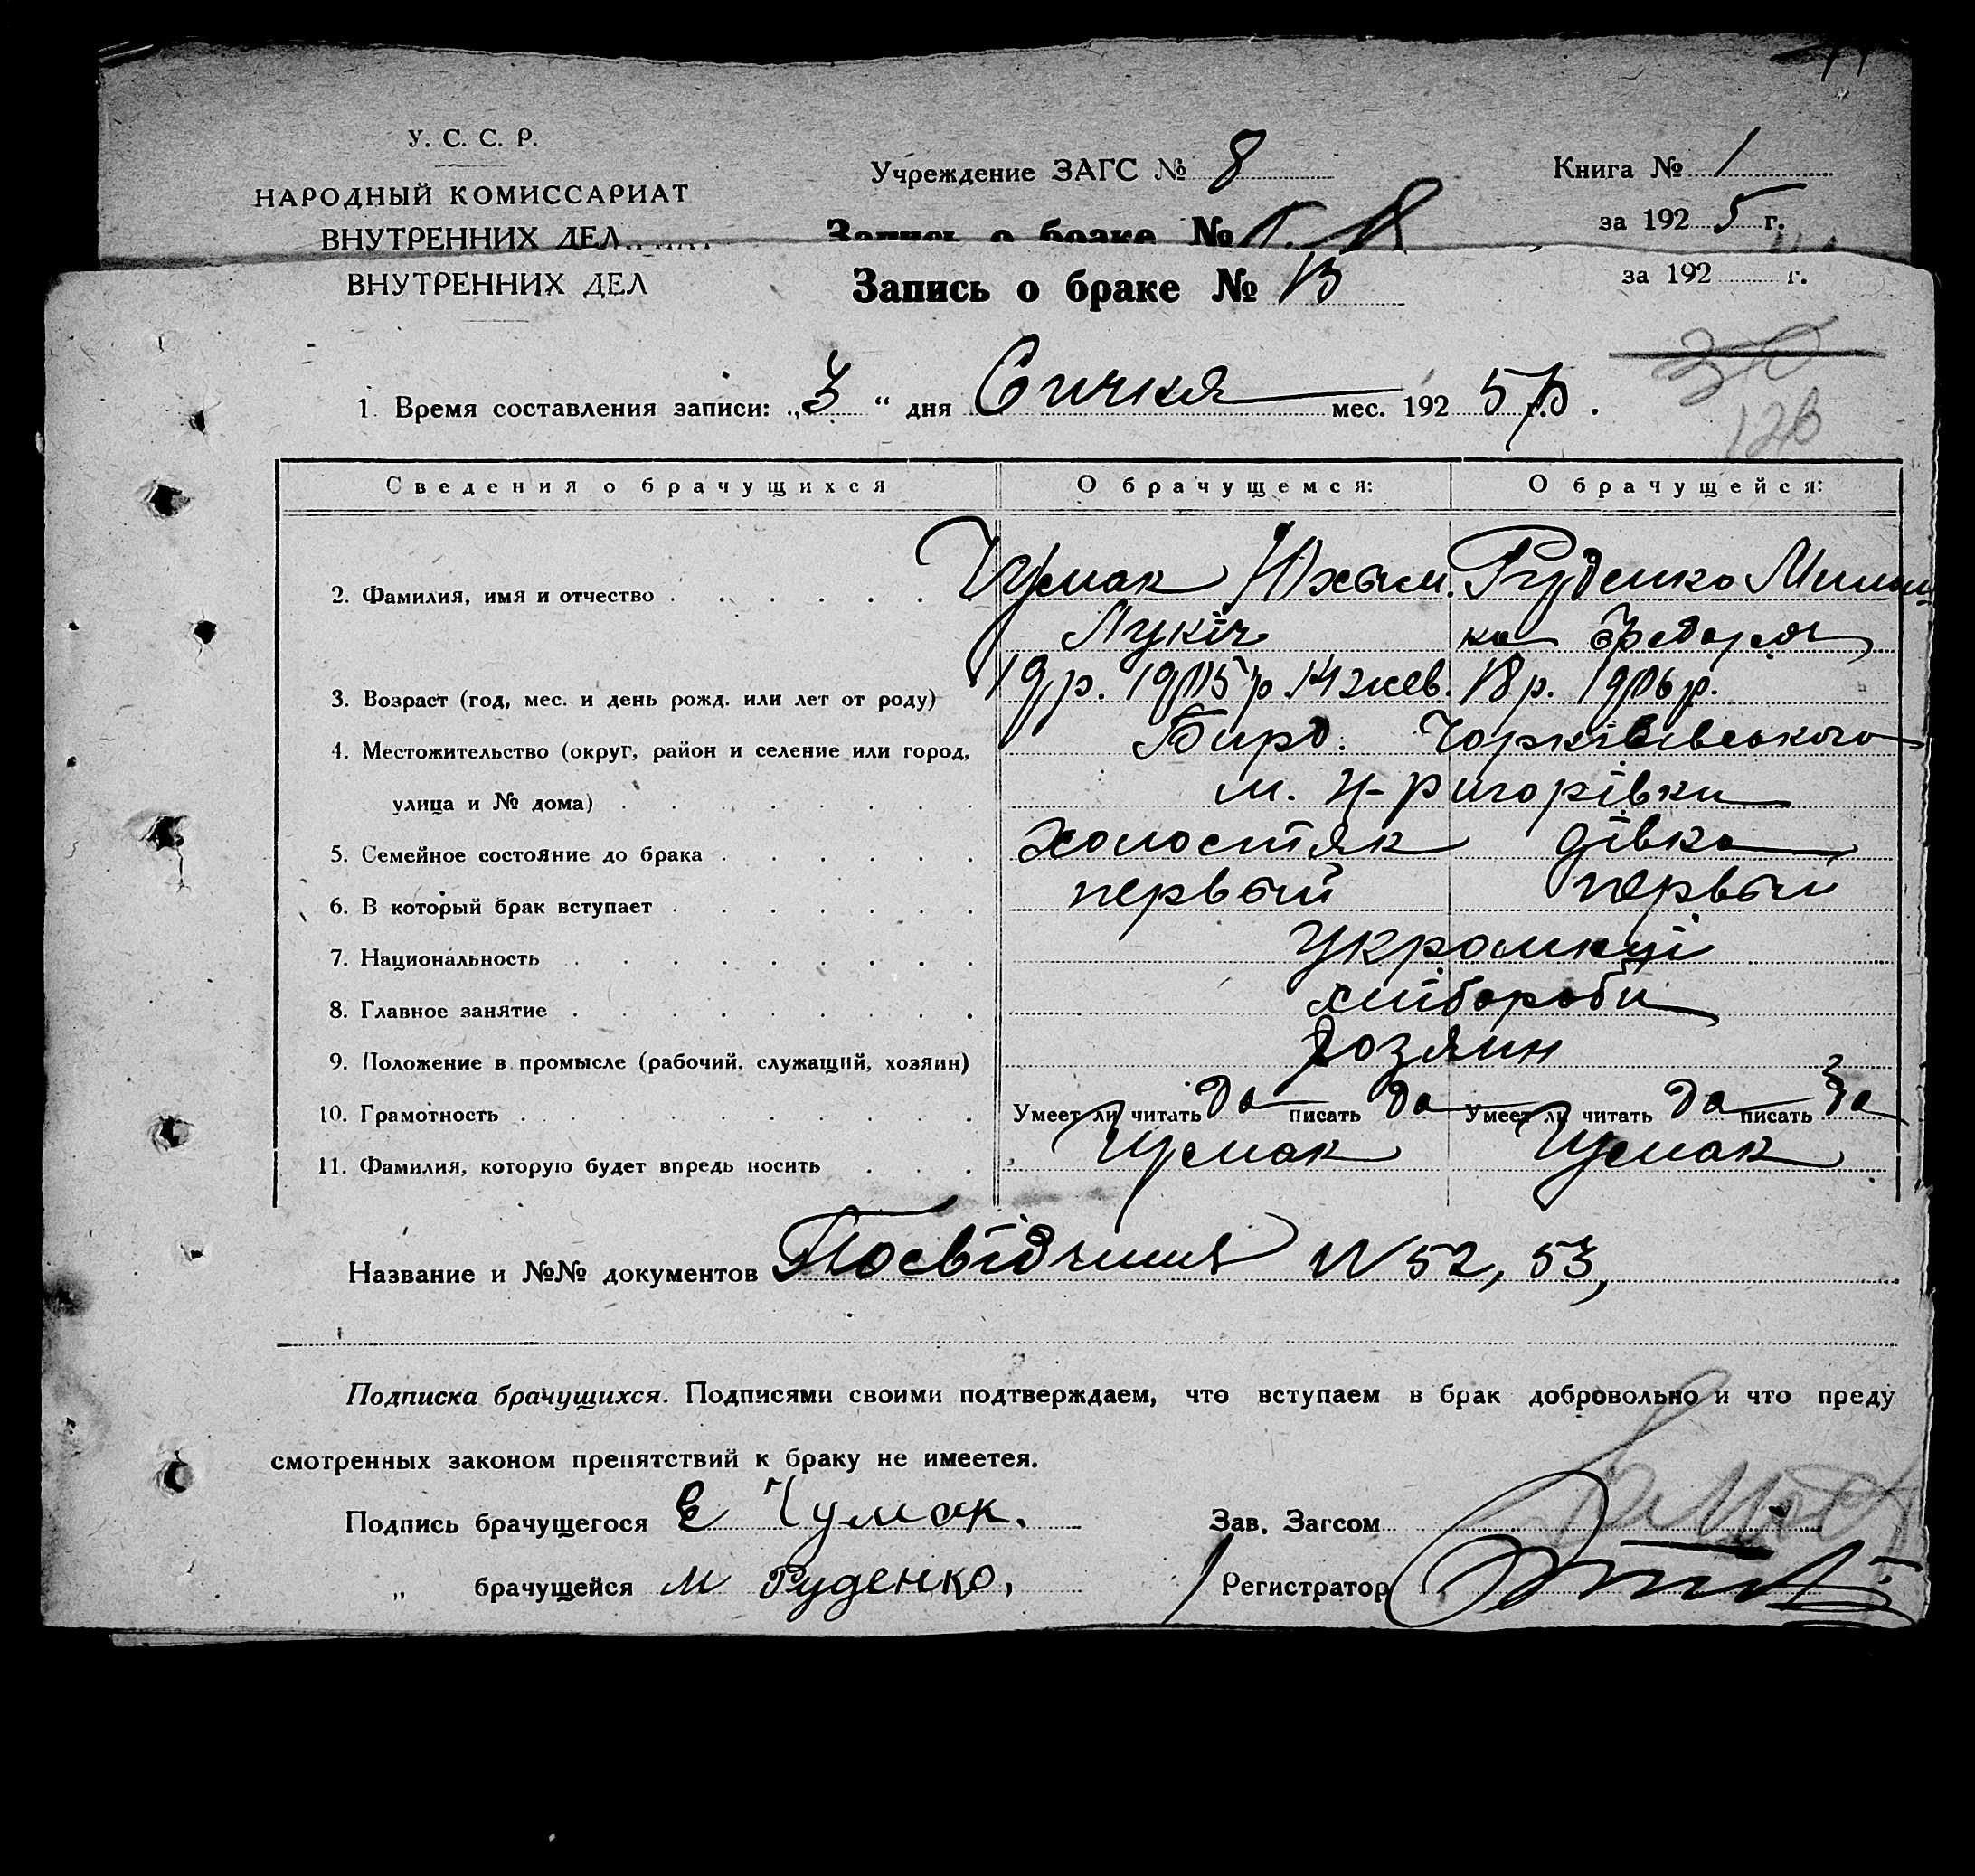 У. С. С. Р.
НАРОДНЫЙ КОМИССАРИАТ
ВНУТРЕННИХ ДЕЛ
Учреждение ЗАГС № 8
Книга № 1
за 1925 г.
Запись о браке №
ВНУТРЕННИХ ДЕЛ
Запись о браке № 13
за 192 г.
1. Время составления записи: „3“ дня Сичня мес. 1925 г. р.
Сведения о брачущихся О брачущемся: О брачущейся:
2. Фамилия, имя и отчество Чумак Юхым Руденко
Лукіч ка Федоров
3. Возраст (год, мес. и день рожд. или лет от роду) 19 р. 1905 р. 14 жов. 18 р. 1906 р.
4. Местожительство (округ, район и селение или город,
улица и № дома) м.
5. Семейное состояние до брака холостяк дівка
6. В который брак вступает первый первый
7. Национальность Украинці
8. Главное занятие хлібороби
9. Положение в промысле (рабочий, служащий, хозяин) хозяин
10. Грамотность Умеет ли читать да писать да Умеет ли читать да писать да
11. Фамилия, которую будет впредь носить Чумак Чумак
Название и №№ документов Посвідчиння № 52, 53,
Подписка брачущихся. Подписями своими подтверждаем, что вступаем в брак добровольно и что преду
смотренных законом препятствий к браку не имеется.
Подпись брачущегося Е Чумак. Зав. Загсом
„ брачущейся М Руденко, Регистратор